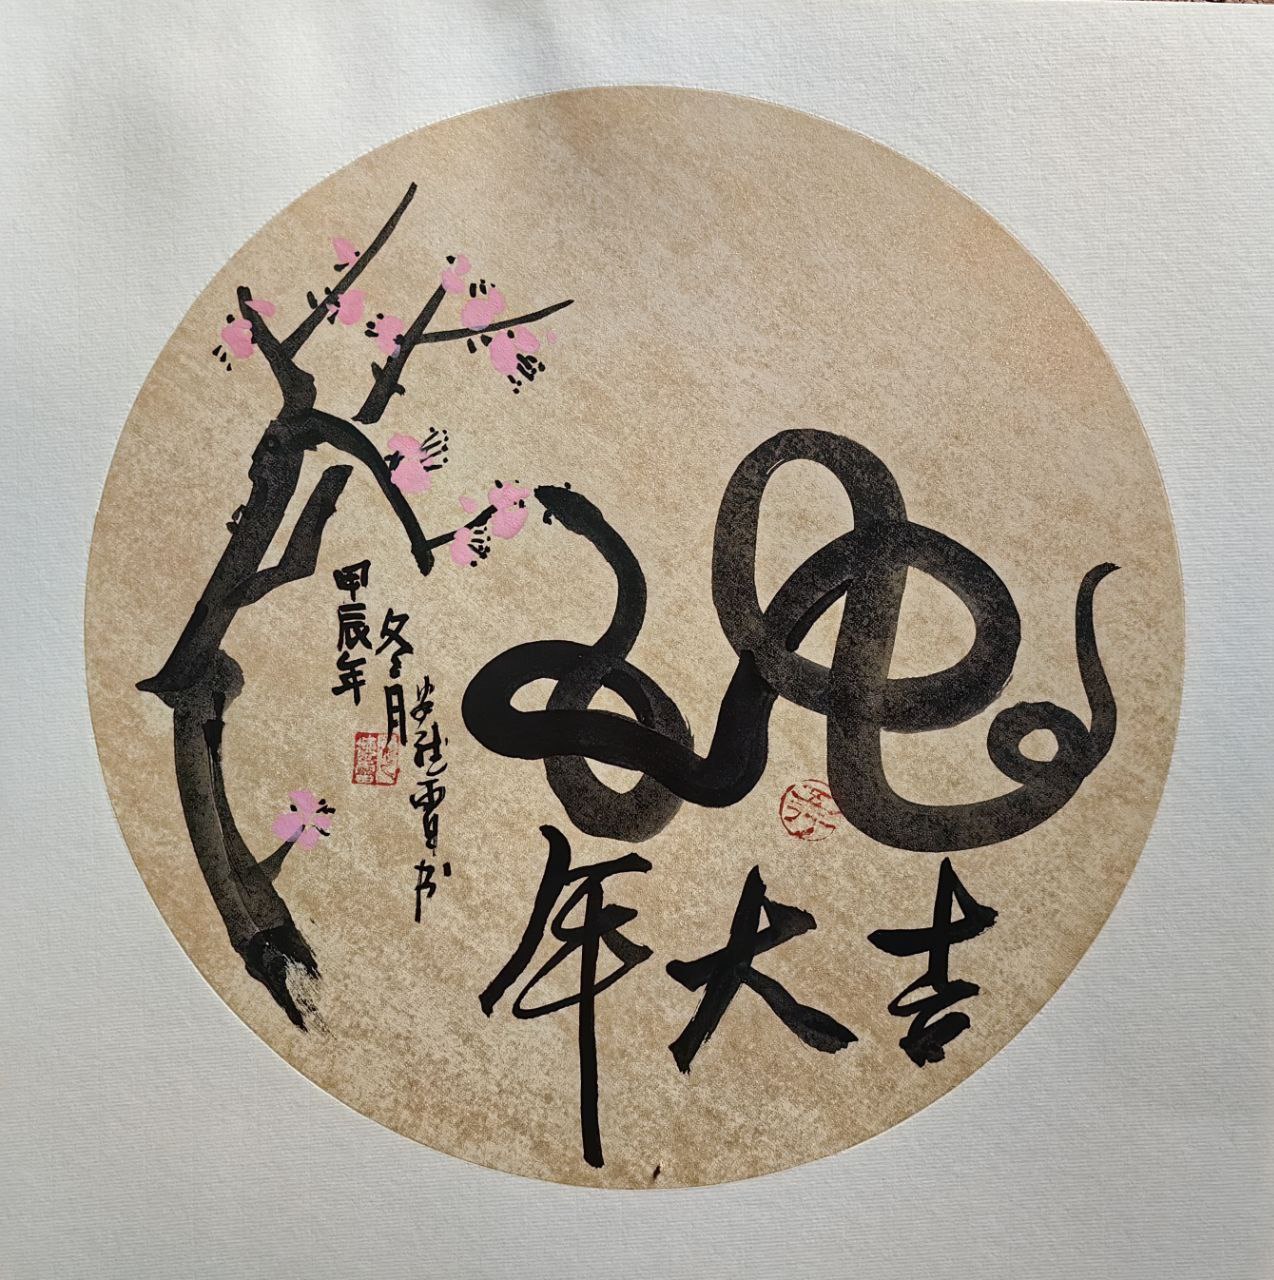 蛇
年大吉
甲辰年
冬月
书